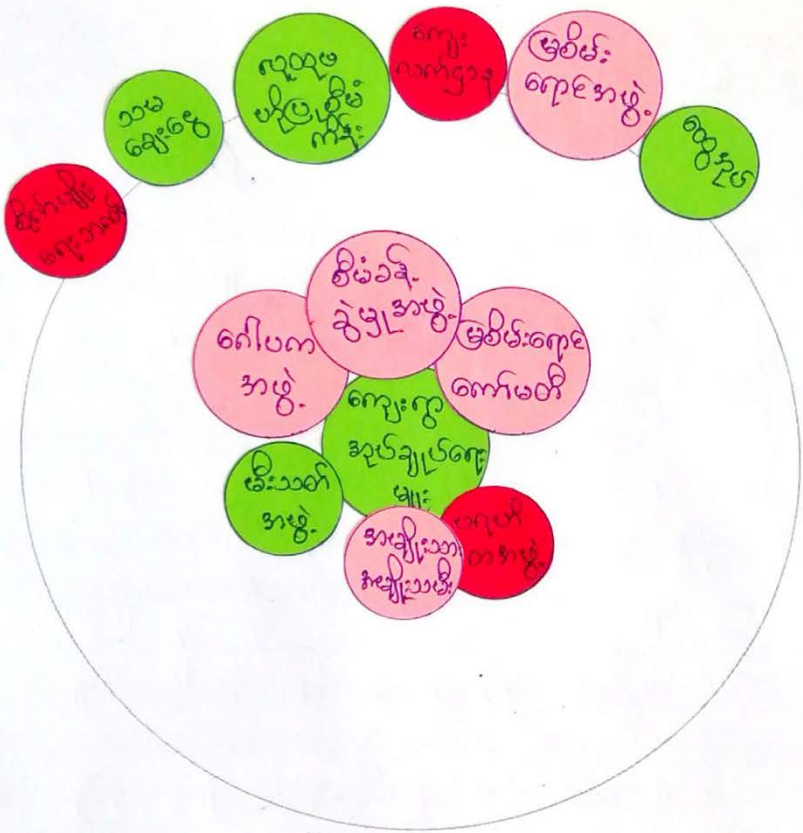 စိုက်ပျိုး
ရေးဘဏ်
သမ
ချေးငွေ
လူထုဗ
ဟိုပြုစီမံ
ကိန်း
ကျေး
လက်ဌာန
မြစိမ်း
ရောင်အဖွဲ့
ထွေအုပ်
စီမံခန့်
ခွဲမှုအဖွဲ့
ဂေါပက
အဖွဲ့
မြစိမ်းရောင်
ကော်မတီ
ကျေးရွာ
အုပ်ချုပ်ရေး
မှူး
မီးသတ်
အဖွဲ့
အမျိုးသား
အမျိုးသမီး
ပရဟိ
တအဖွဲ့